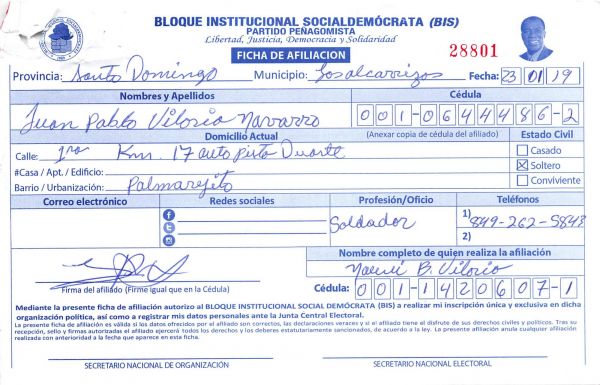 BLOQUE INSTITUCIONAL SOCIALDEMÓCRATA (BIS)
PARTIDO PEÑAGOMISTA
Libertad, Justicia, Democracia y Solidaridad
FICHA DE AFILIACION
28801
Provincia: Santo Domingo Municipio: Los alcarrizos Fecha: 23 01 19
Nombres y Apellidos Cédula
Juan Pablo Vilorio Navarro 001-0644486-2
Domicilio Actual (Anexar copia de cédula del afiliado) Estado Civil
Calle: 1ra Km. 17 auto pista Duarte Casado
#Casa / Apt. / Edificio: Soltero
Barrio / Urbanización: Palmarejito Conviviente
Correo electrónico Redes sociales Profesión/Oficio Teléfonos
Soldador 1) 849-262-5848
2)
Nombre completo de quien realiza la afiliación
B. Vilorio
Firma del afiliado (Firme igual que en la Cédula) Cédula: 001-1420607-1
Mediante la presente ficha de afiliación autorizo al BLOQUE INSTITUCIONAL SOCIAL DEMÓCRATA (BIS) a realizar mi inscripción única y exclusiva en dicha
organización política, así como a registrar mis datos personales ante la Junta Central Electoral.
La presente ficha de afiliación es válida si los datos ofrecidos por el afiliado son correctos, las declaraciones veraces y si el afiliado tiene el disfrute de sus derechos civiles y políticos. Tras su
recepción, sello y firmas autorizadas el afiliado ejercerá todos los derechos y los deberes estatutariamente sancionados, de acuerdo a la ley. La presente afiliación anula cualquier afiliación
realizada con anterioridad a la fecha que aparece en esta ficha.
SECRETARIO NACIONAL DE ORGANIZACIÓN SECRETARIO NACIONAL ELECTORAL